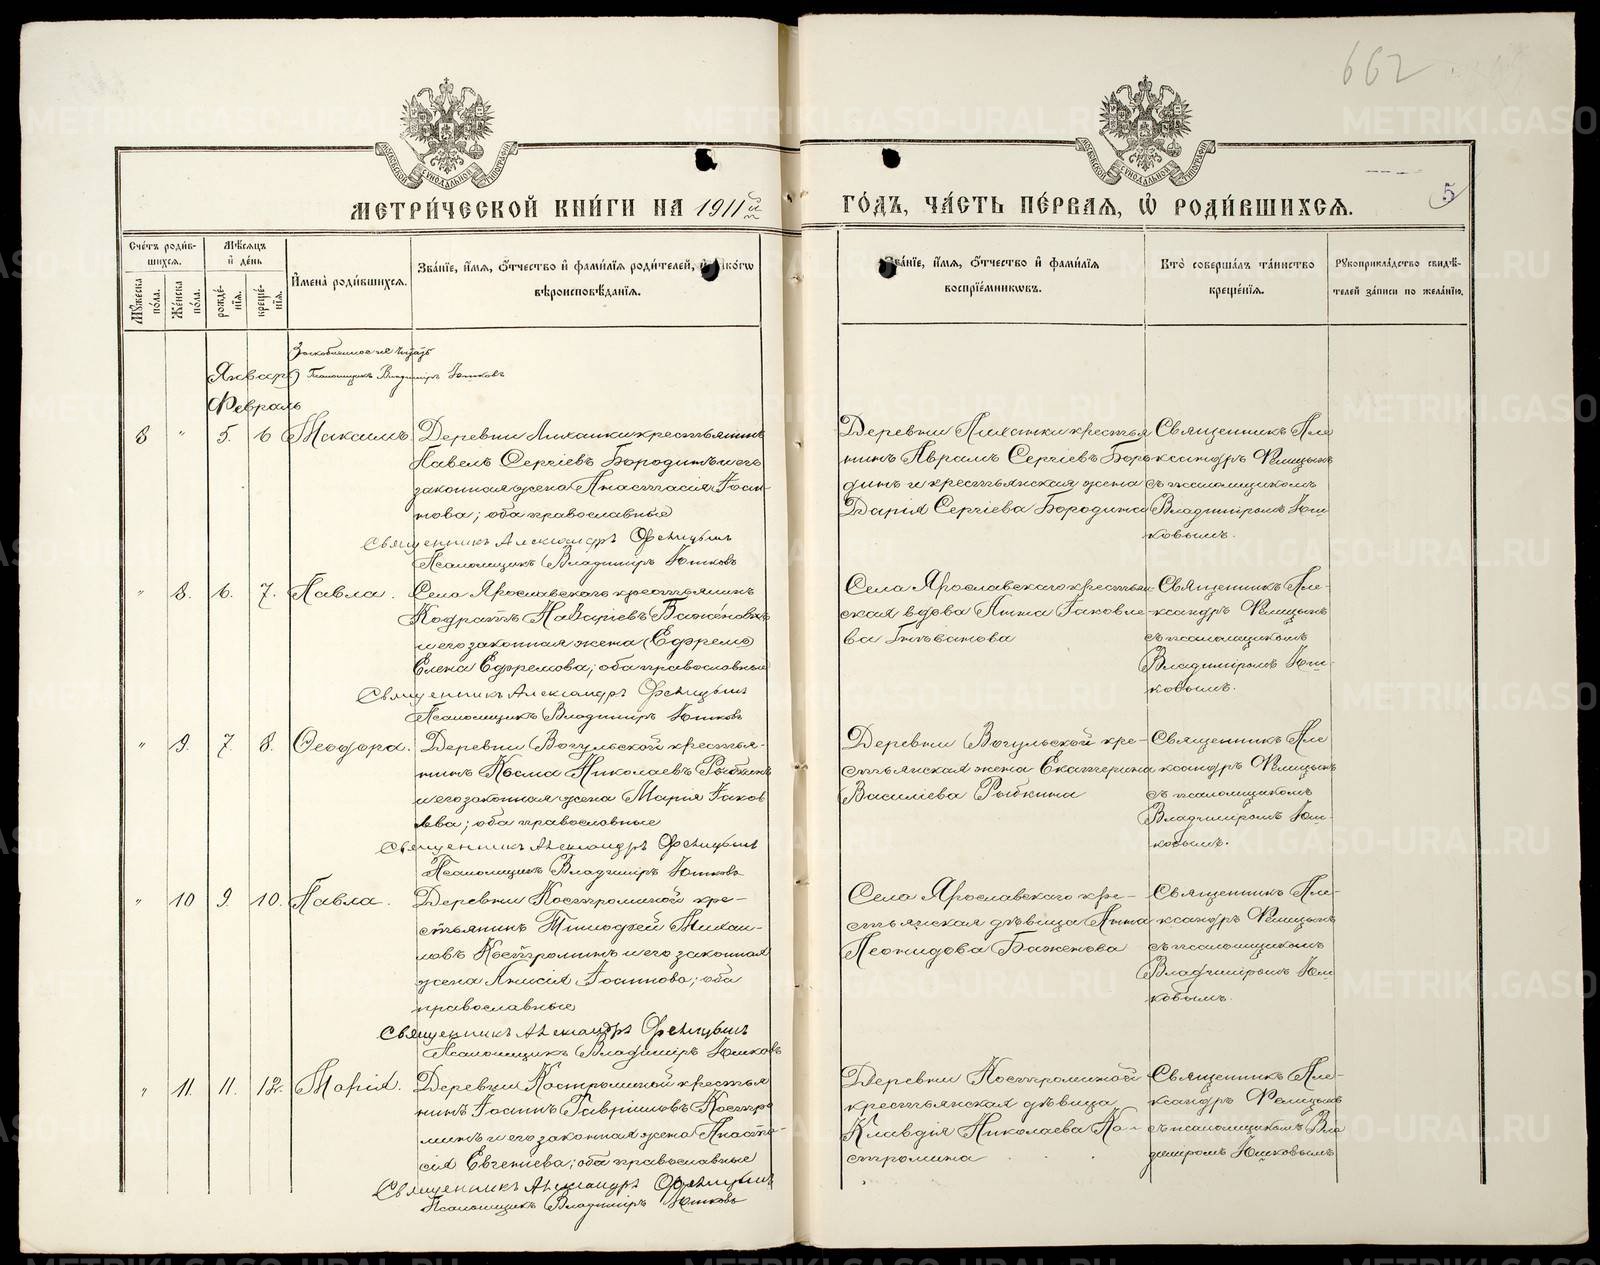 662
5
МОСКОВСКОЙ СУНОДАЛЬНОЙ ТИПОГРАФІИ
МОСКОВСКОЙ СУНОДАЛЬНОЙ ТИПОГРАФІИ
МЕТРИ́ЧЕСКОЙ КНИ́ГИ НА 1911й
ГО́ДЪ, ЧА́СТЬ ПЕ́РВАЯ, Ѽ РОДИ́ВШИХСЯ.
Сче́тъ роди́в-
шихся.
Му́жеска по́ла.
Же́нска по́ла.
Мѣ́сяцъ
и҆ де́нь
рожде́-
нїя.
креще́-
нїя.
И҆мена̀ роди́вшихся.
Зва́нїе, и҆́мя, ѻ҆́тчество и҆ фами́лїя роди́телей, и҆ како́гѡ
вѣроисповѣ́данїя.
Зва́нїе, и҆́мя, ѻ҆́тчество и҆ фами́лїя
воспрїе́мникѡвъ.
Кто̀ соверша́лъ та́инство
креще́нїя.
Рꙋкоприкла́дство свидѣ́-
телей за́писи по жела́нїю.
Зоскобленное не читать
Январь) Псаломщикъ Владиміръ Юшковъ
Февраль
8 " 5. 6 Максимъ.
Деревни Лиханки крестьянинъ
Павелъ Сергіевъ Бородинъ и его
законная жена Анастасія Іоан-
нова; оба православные
Священникъ Александръ Феницынъ
Псаломщикъ Владиміръ Юшковъ
Деревни Лиханки крестья
нинъ Аврамъ Сергіевъ Боро
динъ и крестьянская жена
Дарія Сергіева Бородина
Священникъ Але
ксандръ Феницынъ
съ псаломщикомъ
Владиміромъ Юш
ковымъ.
" 8. 6. 7. Павла.
Села Ярославскаго крестьянинъ
Кодратъ Назаріевъ Баженовъ
и его законная жена (Ефрем)
Елена Ефремова; оба православные
Священникъ Александръ Феницынъ
Псаломщикъ Владиміръ Юшковъ
Села Ярославскаго крестьян-
ская вдова Анна Іаковле-
ва
Священникъ Але-
ксандръ Феницынъ
съ псаломщикомъ
Владиміромъ Юш-
ковымъ.
" 9. 7. 8. Ѳеодора.
Деревни Вогульской крестья-
нинъ Косма Николаевъ Рыбкинъ
и его законная жена Марія Іаков
лева; оба православные
Священникъ Александръ Феницынъ
Псаломщикъ Владиміръ Юшковъ
Деревни Вогульской кре-
стьянская жена Екатерина
Василіева Рыбкина
Священникъ Але
ксандръ Феницынъ
съ псаломщикомъ
Владиміромъ Юш-
ковымъ.
" 10 9. 10. Павла.
Деревни Костроминой кре-
стьянинъ Тимофей Михаи-
ловъ Костроминъ и его законная
жена Анисія Іоаннова; оба
православные
Священникъ Александръ Феницынъ
Псаломщикъ Владиміръ Юшковъ
Села Ярославскаго кре-
стьянская дѣвица Анна
Леонидова Баженова
Священникъ Але-
ксандръ Феницынъ
съ псаломщикомъ
Владиміромъ Юш
ковымъ.
" 11. 11. 12. Марія.
Деревни Костроминой крестья
нинъ Іоаннъ Гавріиловъ Костро
минъ и его законная жена Анаста-
сія Евгеніева; оба православные
Священникъ Александръ Феницынъ
Псаломщикъ Владиміръ Юшковъ
Деревни Костроминой
крестьянская дѣвица
Клавдія Николаева Ко-
стромина
Священникъ Але-
ксандръ Феницынъ
съ псаломщикомъ Вла
диміромъ Юшковымъ
METRIKI.GASO-URAL.RU